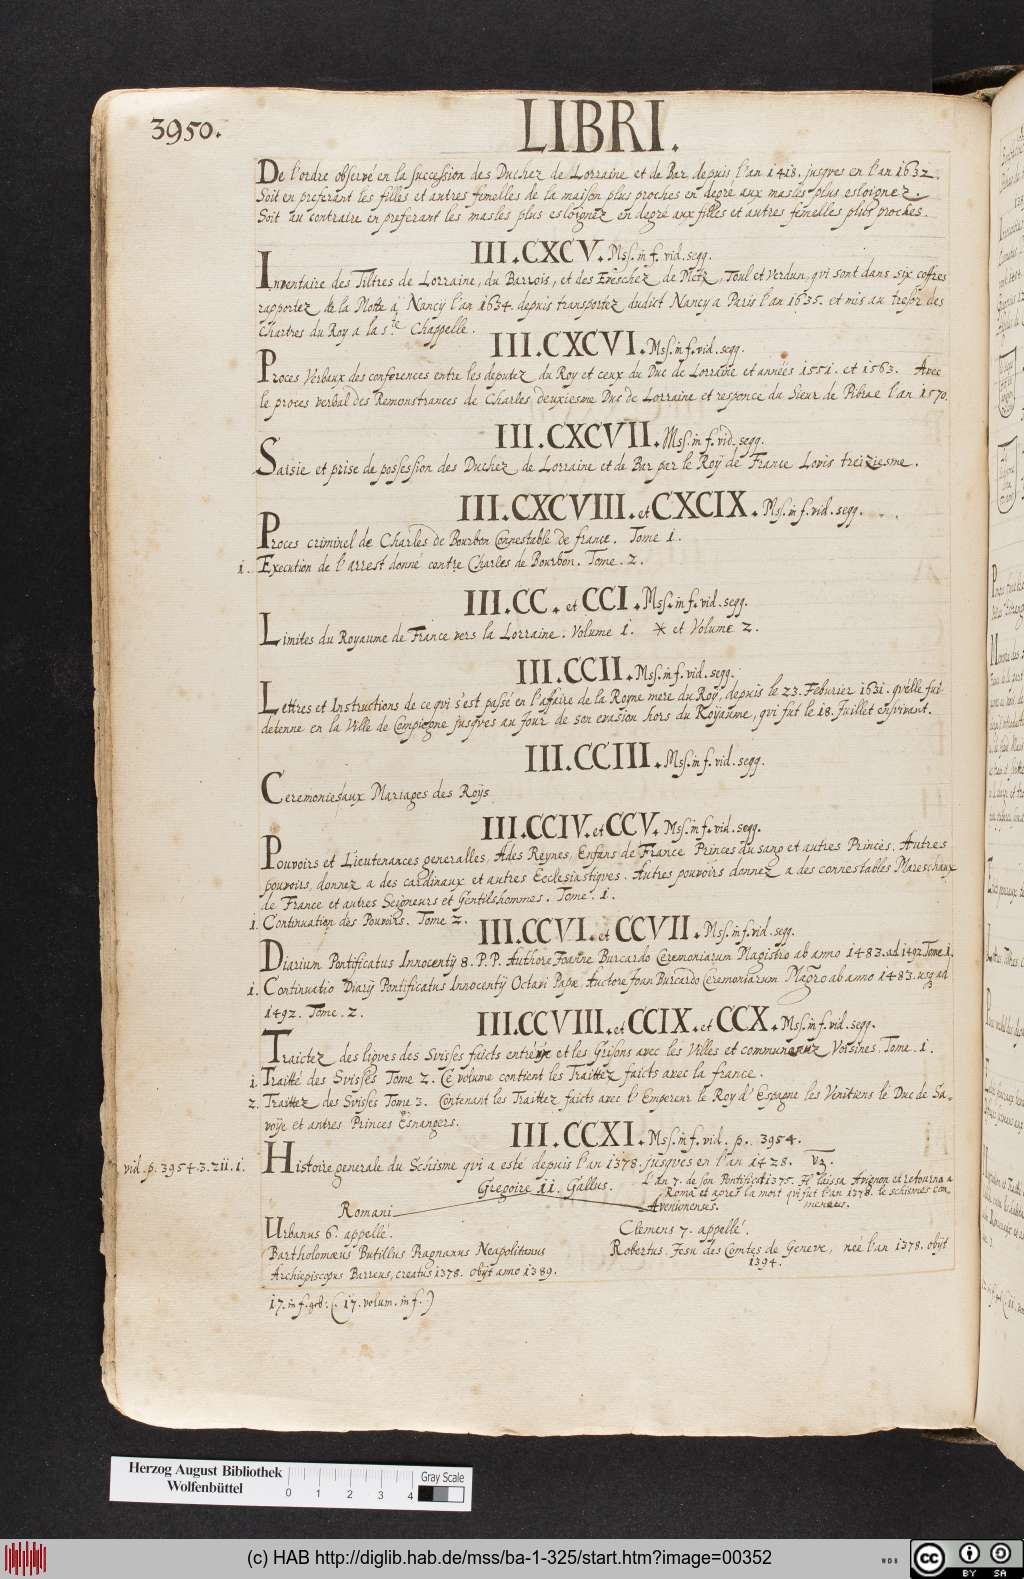 3950.
LIBRI.
De l'ordre observé en la succession des Duchez de Lorraine et de Bar depuis l'an 1418. jusques en l'an 1632.
Soit en preferant les filles et autres femelles de la maison plus proches en degré aux masles plus esloignez
Soit au contraire en preferant les masles plus esloignez en degré aux filles et autres femelles plus proches.
III.CXCV. Mss. in f. vid. segg.
Inventaire des Tiltres de Lorraine, du Barrois, et des Eveschez de Metz, Toul et Verdun, qui sont dans six coffres
rapportez de la Motte a Nancy l'an 1634. depuis transportez dudict Nancy a Paris l'an 1635. et mis au tresor des
Chartres du Roy a la s.te Chappelle.
III.CXCVI. Mss. in f. vid. segg.
Proces Verbaux des conferences entre les deputez du Roy et ceux du Duc de Lorraine et années 1551. et 1563. Avec
le proces verbal des Remonstrances de Charles deuxiesme Duc de Lorraine et responce du Sieur de Pibrac l'an 1570.
III.CXCVII. Mss. in f. vid. segg.
Saisie et prise de possession des Duchez de Lorraine et de Bar par le Roÿ de France Lovis treiziesme.
III.CXCVIII. et CXCIX. Mss. in f. vid. segg.
Proces criminel de Charles de Bourbon Connestable de france. Tome 1.
1. Execution de l'arrest donné contre Charles de Bourbon. Tome. 2.
III.CC. et CCI. Mss. in f. vid. segg.
Limites du Royaume de France vers la Lorraine. Volume 1. * et Volume 2.
III.CCII. Mss. in f. vid. segg.
Lettres et Instructions de ce qui s'est passé en l'affaire de la Royne mere du Roy, depuis le 23. Feburier 1631. qu'elle fut
detenue en la Ville de Compiegne jusques au Jour de son evasion hors du Roÿaume, qui fut le 18. Juillet ensuivant.
III.CCIII. Mss. in f. vid. segg.
Ceremonies aux Mariages des Roÿs
III.CCIV. et CCV. Mss. in f. vid. segg.
Pouvoirs et Lieutenances generalles, Ades Reynes, Enfans de France Princes du sang et autres Princes. Autres
pouvoirs, donnez a des cardinaux et autres Ecclesiastiques. Autres pouvoirs donnez a des connestables Mareschaux
de France et autres Seigneurs et Gentilshommes. Tome. 1.
1. Continuation des Pouvoirs. Tome 2.
III.CCVI. et CCVII. Mss. in f. vid. segg.
Diarium Pontificatus Innocentÿ 8. P.P. Authore Joanne Burcardo Ceremoniarum Magistro ab anno 1483. ad 1492. Tome 1.
1. Continuatio Diarÿ Pontificatus Innocentÿ Octavi Papæ. Auctore Joan Burcardo Ceremoniarum Magro ab anno 1483. usq ad
1492. Tome. 2.
III.CCVIII. et CCIX. et CCX. Mss. in f. vid. segg.
Traictez des ligues des Suisses faicts entre et les Grisons avec les Villes et Voisines. Tome. 1.
1. Traitté des Suisses Tome 2. Ce volume contient les Traittez faicts avec la france.
2. Traittez des Suisses Tome 3. Contenant les Traittez faicts avec l'Empereur le Roy d'Espagne les Venitiens le Duc de Sa-
voije et autres Princes Estrangers.
III.CCXI. Mss. in f. vid. p. 3954.
vid. p. 3954. 3. 211. 1.
Histoire generale du Schisme qui a esté depuis l'an 1378. jusques en l'an 1428.
Gregoire 11. Gallus.
L'an 7. de son Pontificat 1375. Il laissa Avignon et retourna a
Roma et apres la mort qui fut l'an 1378. le schismes com
mences.
Romani
Avenionensis.
Urbanus 6. appellé.
Clemens 7. appellé.
Bartholomæus Butillus Pragnanus Neapolitanus
Robertus. Fesu des Comtes de Geneve, née l'an 1378. obijt
Archiepiscopus Barreus, creatus 1378. obijt anno 1389.
1394.
17. in f. geb. (17. volum. in f.)
Herzog August Bibliothek
Wolfenbüttel
0 1 2 3 4
Gray Scale
(c) HAB http://diglib.hab.de/mss/ba-1-325/start.htm?image=00352
WDB
cc BY SA